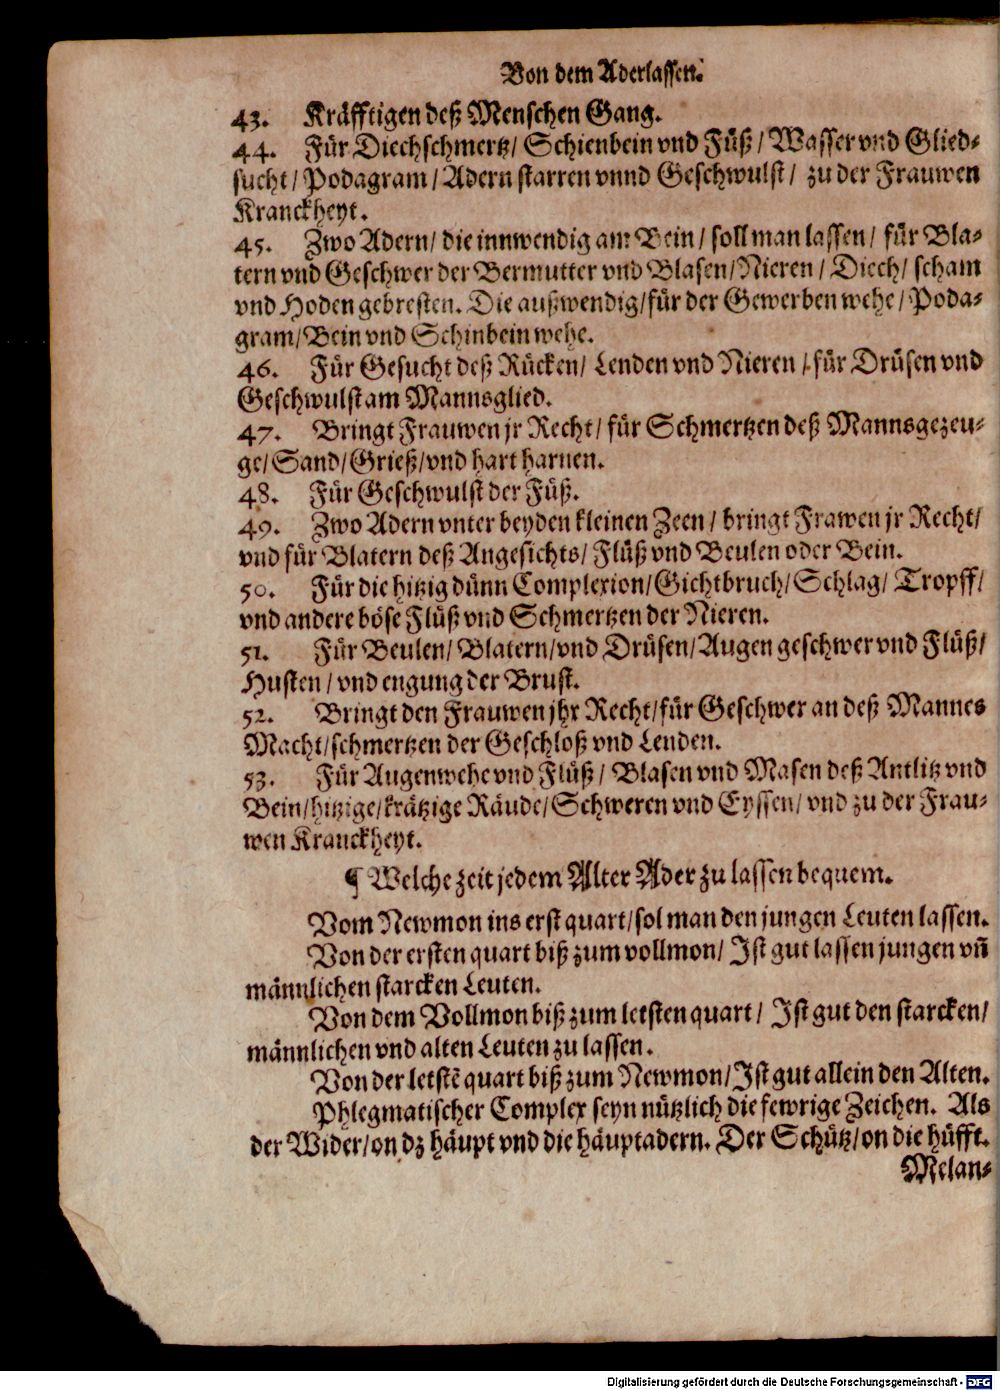 Von dem Aderlassen.
43. Kräfftigen deß Menschen Gang.
44. Für Diechschmertz/ Schienbein vnd Füß/ Wasser vnd Glied-
sucht/ Podagram/ Adern starren vnnd Geschwulst/ zu der Frauwen
Kranckheyt.
45. Zwo Adern/ die innwendig am Bein/ soll man lassen/ für Bla-
tern vnd Geschwer der Bermutter vnd Blasen/ Nieren/ Diech/ scham
vnd Hoden gebresten. Die außwendig/ für der Gewerben wehe/ Poda-
gram/ Bein vnd Schinbein wehe.
46. Für Gesucht deß Rücken/ Lenden vnd Nieren/ für Drüsen vnd
Geschwulst am Mannsglied.
47. Bringt Frauwen jr Recht/ für Schmertzen deß Mannsgezeu-
ge/ Sand/ Grieß/ vnd hart harnen.
48. Für Geschwulst der Füß.
49. Zwo Adern vnter beyden kleinen Zeen/ bringt Frawen jr Recht/
vnd für Blatern deß Angesichts/ Flüß vnd Beulen oder Bein.
50. Für die hitzig dünn Complexion/ Gichtbruch/ Schlag/ Tropff/
vnd andere böse Flüß vnd Schmertzen der Nieren.
51. Für Beulen/ Blatern/ vnd Drüsen/ Augen geschwer vnd Flüß/
Husten/ vnd engung der Brust.
52. Bringt den Frauwen jhr Recht/ für Geschwer an deß Mannes
Macht/ schmertzen der Geschloß vnd Lenden.
53. Für Augenwehe vnd Flüß/ Blasen vnd Masen deß Antlitz vnd
Bein/ hitzige/ krätzige Räude/ Schweren vnd Eyssen/ vnd zu der Frau-
wen Kranckheyt.
¶ Welche zeit jedem Alter Ader zu lassen bequem.
Vom Newmon ins erst quart/ sol man den jungen Leuten lassen.
Von der ersten quart biß zum vollmon/ Ist gut lassen jungen vñ
männlichen starcken Leuten.
Von dem Vollmon biß zum letsten quart/ Ist gut den starcken/
männlichen vnd alten Leuten zu lassen.
Von der letstē quart biß zum Newmon/ Ist gut allein den Alten.
Phlegmatischer Complex seyn nützlich die fewrige Zeichen. Als
der Wider/ on dz häupt vnd die häuptadern. Der Schütz/ on die hüfft.
Melan-
Digitalisierung gefördert durch die Deutsche Forschungsgemeinschaft - DFG